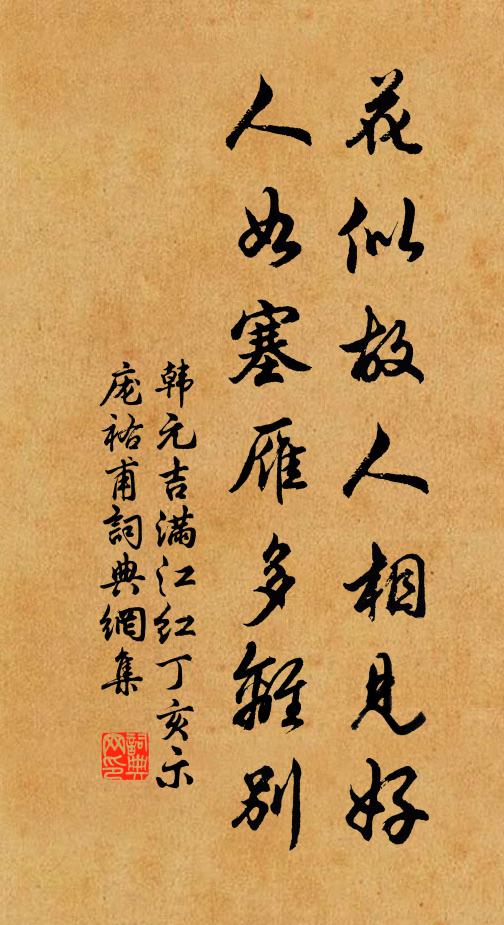 花似故人相見好
人如塞雁多離別
韩元吉满江红丁亥示
庞祐甫詞典網集
詞典网印